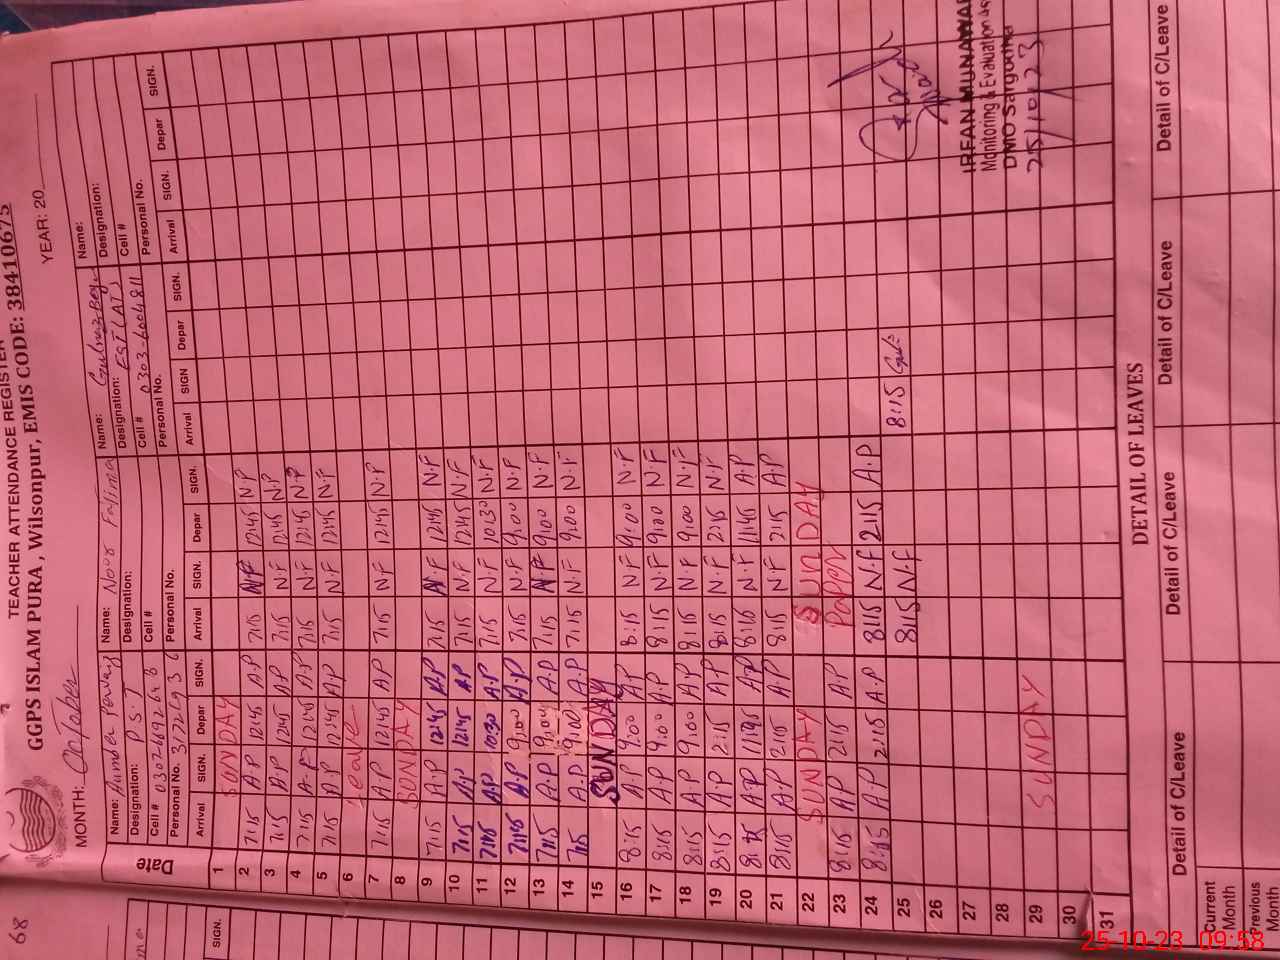 68
TEACHER ATTENDANCE REGISTER
GGPS ISLAM PURA, Wilsonpur, EMIS CODE: 38410675
MONTH: October YEAR: 20
Date
Name: Pervaiz Name: Noor Fatima Name: Name:
Designation: P S T Designation: Designation: EST (AT) Designation:
Cell # Cell # Cell # 0303-6004811 Cell #
Personal No. Personal No. Personal No. Personal No.
Arrival SIGN. Depar SIGN. Arrival SIGN. Depar SIGN. Arrival SIGN Depar SIGN. Arrival SIGN. Depar SIGN.
SIGN.
1 SUNDAY
2 7:15 A.P 12:45 A.P 7:15 N.F 12:45 N.P
3 7:15 A.P 12:45 A.P 7:15 N.F 12:45 N.P
4 7:15 A.P 12:45 A.P 7:15 N.F 12:45 N.P
5 7:15 A.P 12:45 A.P 7:15 N.F 12:45 N.F
6 Leave
7 7:15 A.P 12:45 A.P 7:15 N.F 12:45 N.P
8 SUNDAY
9 7:15 A.P 12:45 A.P 7:15 N.F 12:45 N.F
10 7:15 A.P 12:45 A.P 7:15 N.F 12:45 N.F
11 A.P 10:30 A.P 7:15 N.F 10:30 N.F
12 A.P 9:00 A.P 7:15 N.F 9:00 N.F
13 7:15 A.P 9:00 A.P 7:15 N.F 9:00 N.F
14 7:15 A.P 9:00 A.P 7:15 N.F 9:00 N.F
15 SUNDAY
16 8:15 A.P 9:00 A.P 8:15 N.F 9:00 N.F
17 8:15 A.P 9:00 A.P 8:15 N.F 9:00 N.F
18 8:15 A.P 9:00 A.P 8:15 N.F 9:00 N.F
19 8:15 A.P 2:15 A.P 8:15 N.F 2:15 N.F
20 A.P 11:45 A.P N.F 11:45 A.P
21 8:15 A.P 2:15 A.P 8:15 N.F 2:15 A.P
22 SUNDAY SUNDAY
23 8:15 A.P 2:15 A.P
24 8:15 A.P 2:15 A.P 8:15 N.F 2:15 A.P
25 8:15 N.F 8:15
26
27
28
29 SUNDAY
30
31
IRFAN MUNAWAR
Monitoring & Evaluation
DMO Sargodha
25/10/23
DETAIL OF LEAVES
Detail of C/Leave Detail of C/Leave Detail of C/Leave Detail of C/Leave
Current Month
Previous Month
25-10-23 09:58